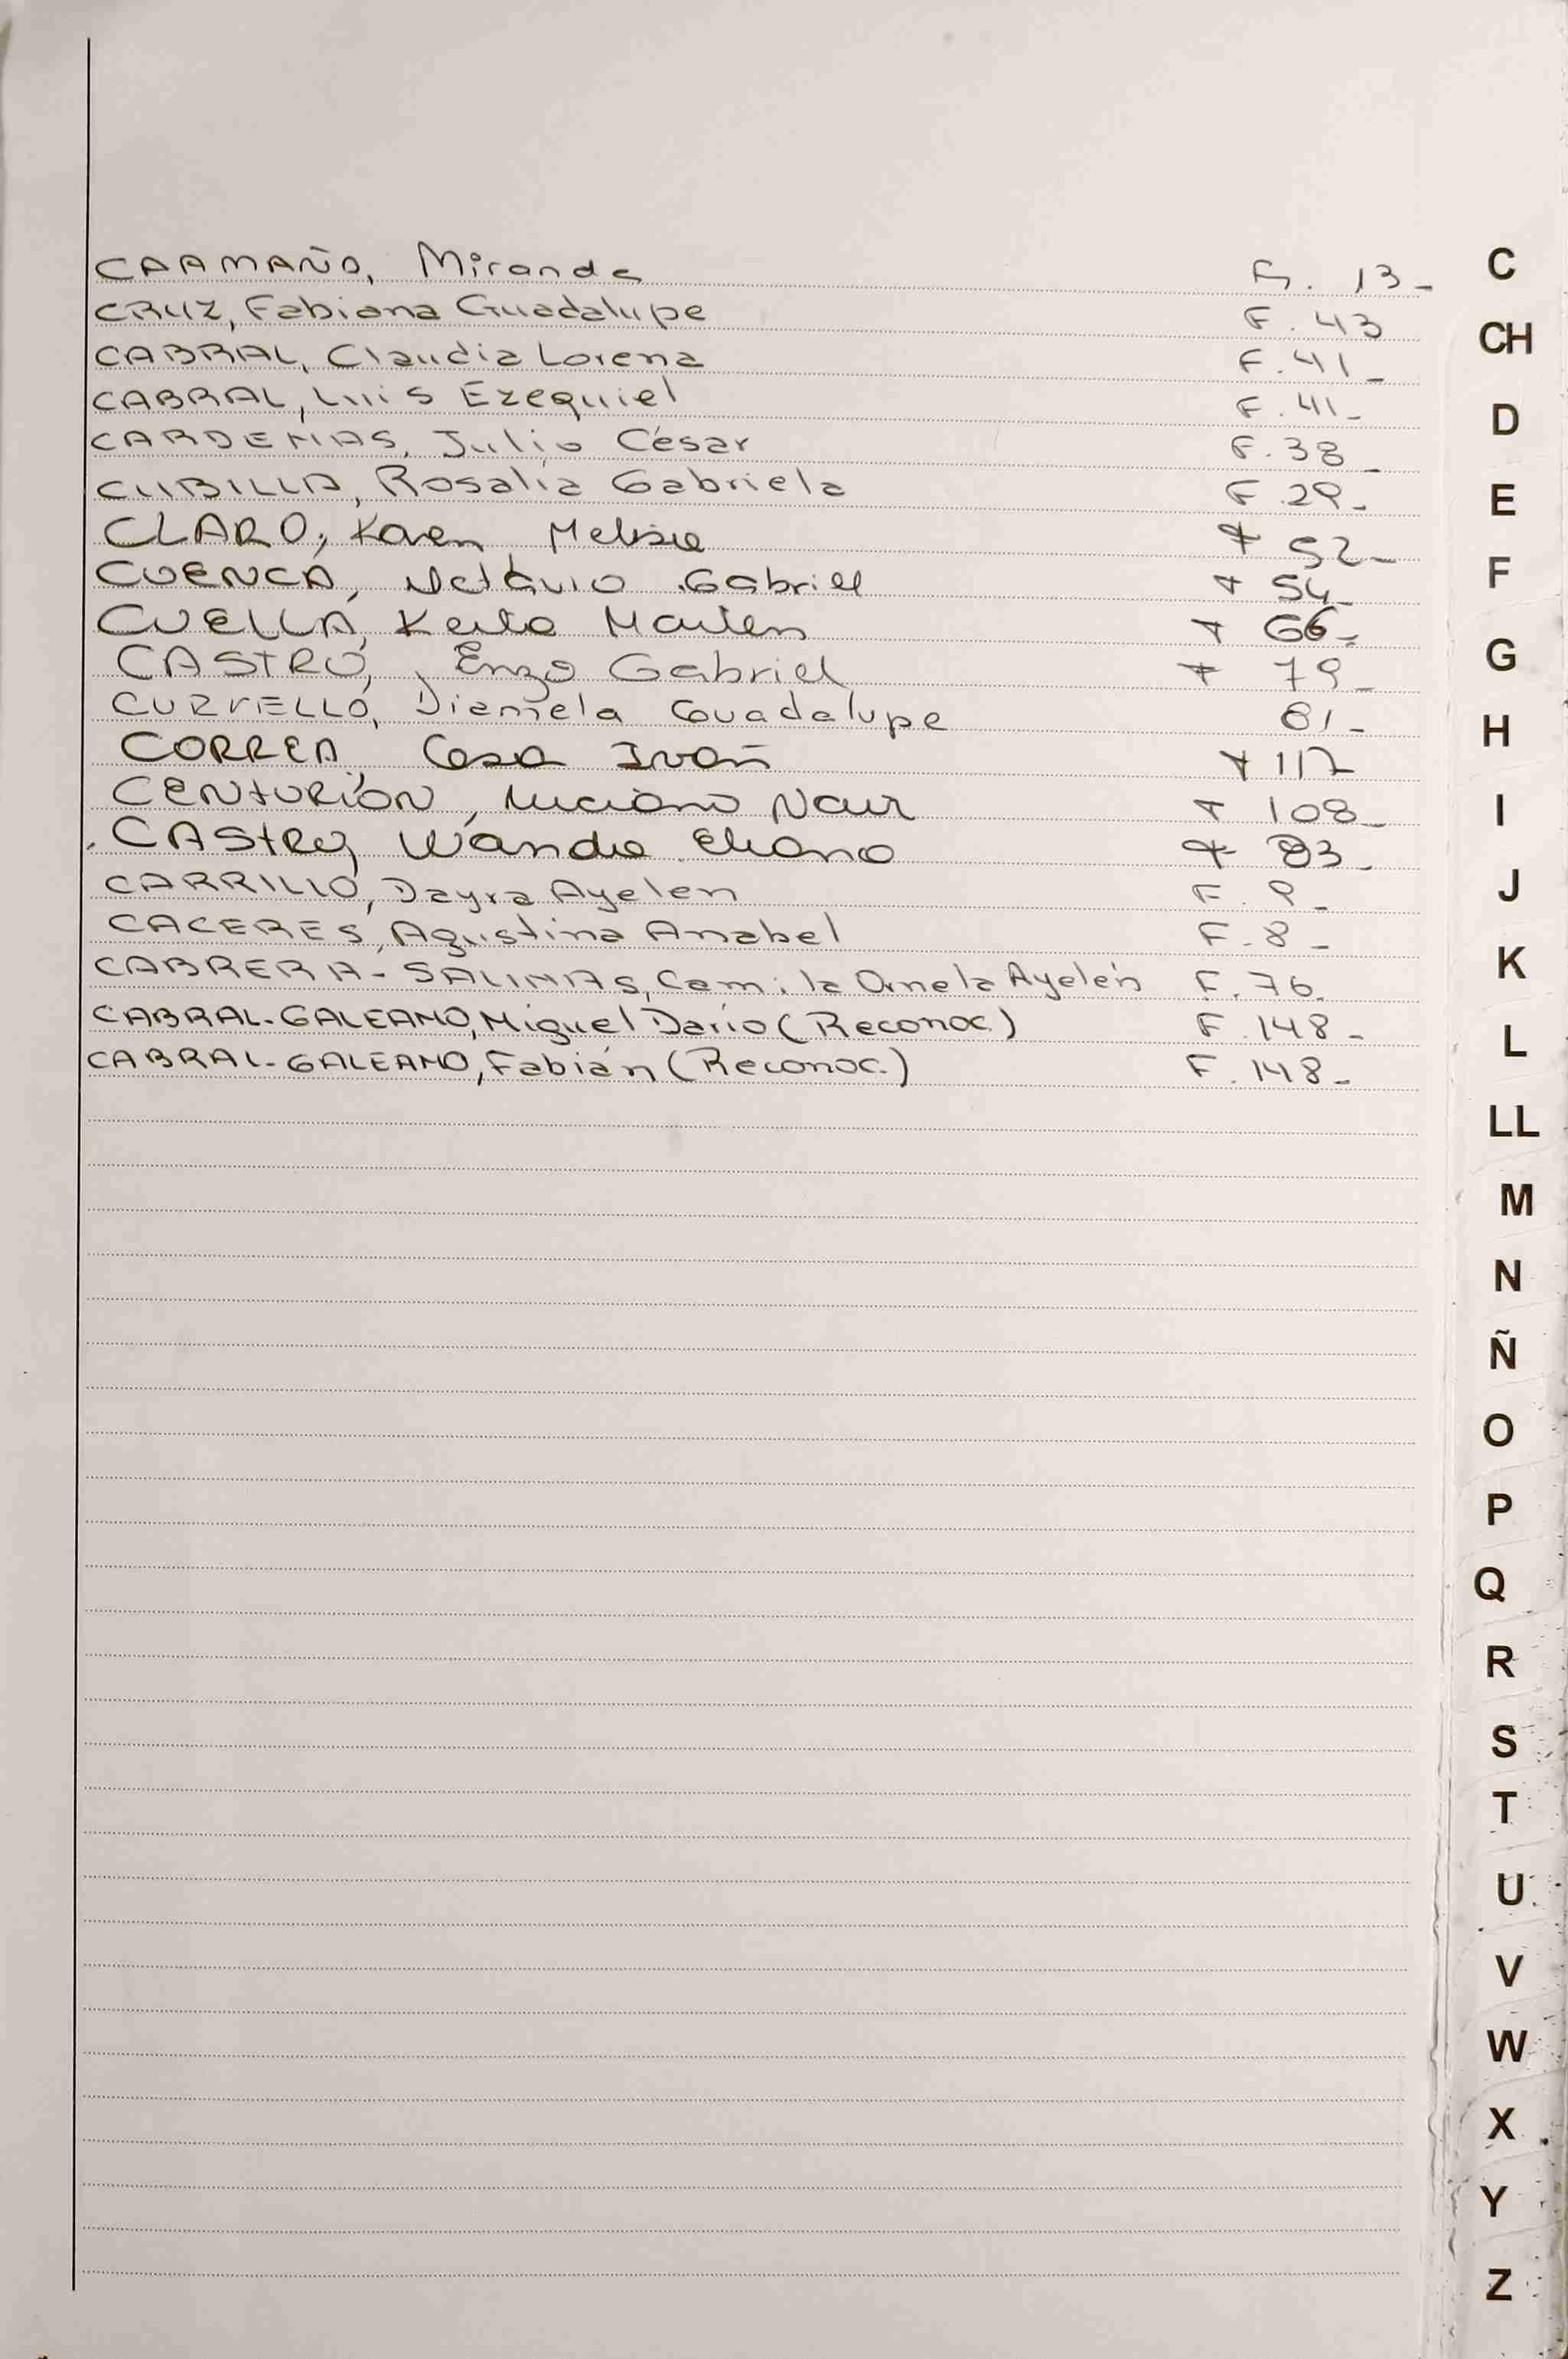 CAAMAÑO, Miranda F. 13-
CRUZ, Fabiana Guadalupe F. 43
CABRAL, Claudia Lorena F. 41-
CABRAL, Luis Ezequiel F. 41-
CARDENAS, Julio César F. 38-
CUBILLA, Rosalía Gabriela F. 29-
CLARO, Karen Melisa F 52-
CUENCA, Octavio Gabriel F 54-
CUELLA, Keila Mailen F 66-
CASTRO, Enzo Gabriel F 79-
CURVELLO, Daniela Guadalupe 81-
CORREA, Ivan F 117
CENTURIÓN, Luciano Nair F 108-
CASTRO, Wanda Eliana F 83-
CARRILLO, Dayra Ayelen F. 9-
CACERES, Agustina Anabel F. 8-
CABRERA-SALINAS, Camila Ornela Ayelén F. 76.
CABRAL-GALEANO, Miguel Darío (Reconoc.) F. 148-
CABRAL-GALEANO, Fabián (Reconoc.) F. 148-
C
CH
D
E
F
G
H
I
J
K
L
LL
M
N
Ñ
O
P
Q
R
S
T
U
V
W
X
Y
Z